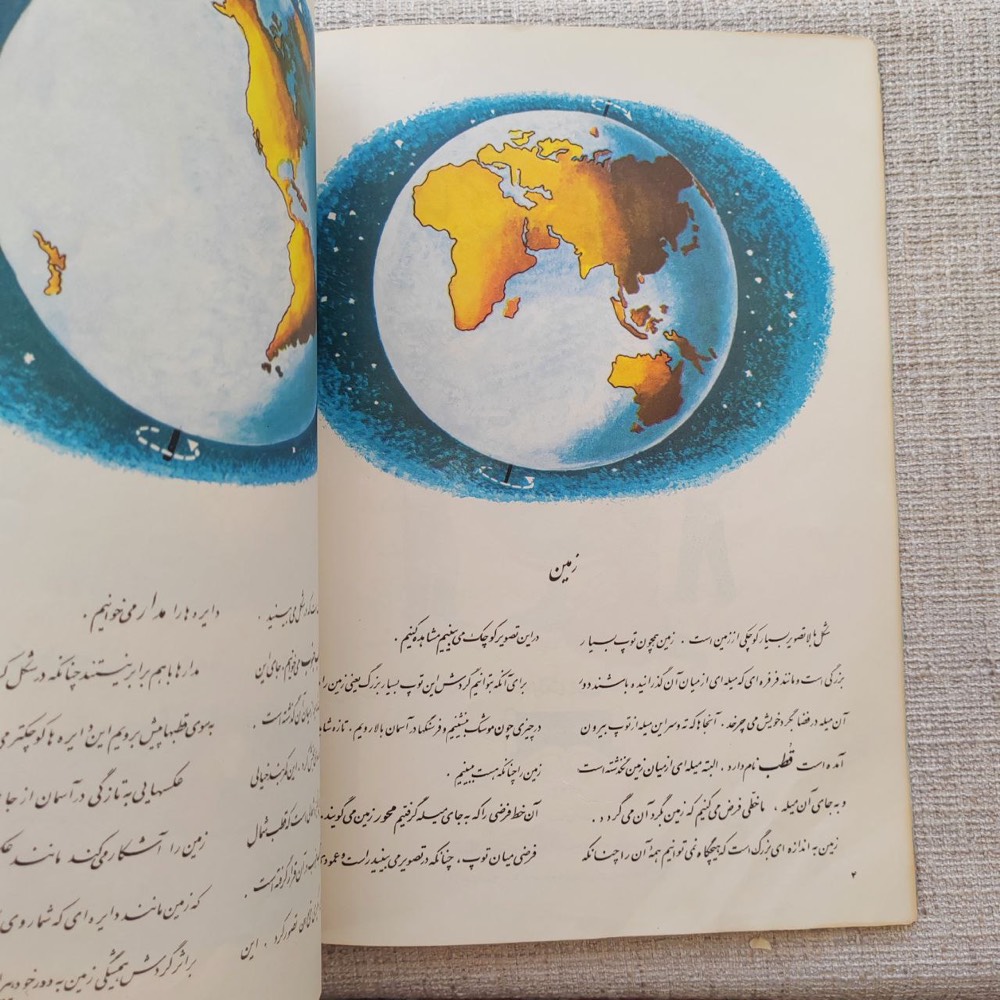 زمین
شکل بالا تصویر بسیار کوچکی از زمین است . زمین همچون توپ بسیار
بزرگی است و مانند فرفره ای که میله ای از میان آن گذرانیده باشند دور
آن میله در فضا گرد خویش می چرخد . آنجاها که ته و سر این میله از توپ بیرون
آمده است قطب نام دارد . البته میله ای از میان زمین نگذشته است
و به جای آن میله ، ما خطی فرض می کنیم که زمین بگرد آن می گردد .
زمین به اندازه ای بزرگ است که هیچگاه نمی توانیم همهٔ آن را چنانکه
در این تصویر کوچک می بینیم مشاهده کنیم .
برای آنکه بتوانیم گردش این توپ بسیار بزرگ یعنی زمین را
در چیزی چون موشک بنشینیم و فرسنگها در آسمان بالا رویم . تازه
زمین را چنانکه هست ببینیم .
آن خط فرضی را که به جای میله گرفتیم محور زمین می گویند .
فرضی میان توپ ، چنانکه در تصویر می بینید راست و
۲
شکل می بینید .
می خوانیم ، جای این
گذشته است .
خیالی
است که قطب شمال
قرار گرفته است .
تصور کرد . این
دایره ها را مدار می خوانیم .
مدارها با هم برابر نیستند چنانکه در شکل
بسوی قطبها پیش برویم این دایره ها کوچکتر می
عکسهایی که به تازگی در آسمان از
زمین را آشکار می کند مانند
که زمین مانند دایره ای که شما روی
بر اثر گردش همیشگی زمین به دور خود